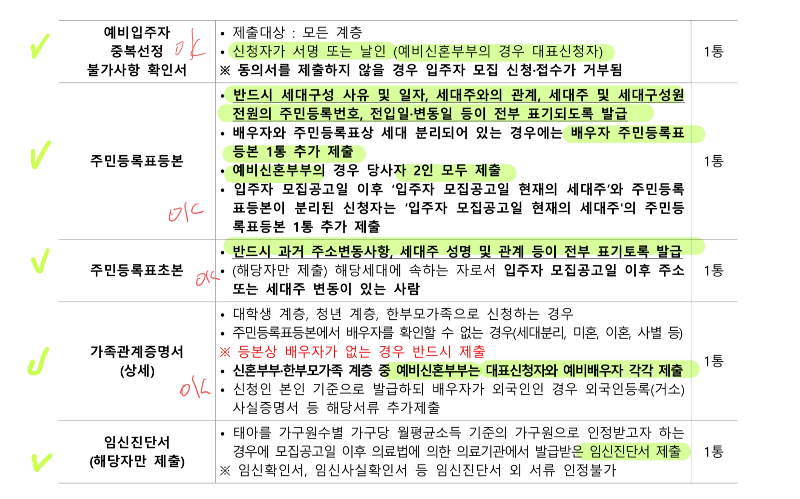 예비입주자
중복선정
불가사항 확인서
ok
• 제출대상 : 모든 계층
• 신청자가 서명 또는 날인 (예비신혼부부의 경우 대표신청자)
※ 동의서를 제출하지 않을 경우 입주자 모집 신청·접수가 거부됨
1통
주민등록표등본
ok
• 반드시 세대구성 사유 및 일자, 세대주와의 관계, 세대주 및 세대구성원
전원의 주민등록번호, 전입일·변동일 등이 전부 표기되도록 발급
• 배우자와 주민등록표상 세대 분리되어 있는 경우에는 배우자 주민등록표
등본 1통 추가 제출
• 예비신혼부부의 경우 당사자 2인 모두 제출
• 입주자 모집공고일 이후 '입주자 모집공고일 현재의 세대주'와 주민등록
표등본이 분리된 신청자는 '입주자 모집공고일 현재의 세대주'의 주민등
록표등본 1통 추가 제출
1통
주민등록표초본
ok
• 반드시 과거 주소변동사항, 세대주 성명 및 관계 등이 전부 표기토록 발급
• (해당자만 제출) 해당세대에 속하는 자로서 입주자 모집공고일 이후 주소
또는 세대주 변동이 있는 사람
1통
가족관계증명서
(상세)
ok
• 대학생 계층, 청년 계층, 한부모가족으로 신청하는 경우
• 주민등록표등본에서 배우자를 확인할 수 없는 경우(세대분리, 미혼, 이혼, 사별 등)
※ 등본상 배우자가 없는 경우 반드시 제출
• 신혼부부·한부모가족 계층 중 예비신혼부부는 대표신청자와 예비배우자 각각 제출
• 신청인 본인 기준으로 발급하되 배우자가 외국인인 경우 외국인등록(거소)
사실증명서 등 해당서류 추가제출
1통
임신진단서
(해당자만 제출)
• 태아를 가구원수별 가구당 월평균소득 기준의 가구원으로 인정받고자 하는
경우에 모집공고일 이후 의료법에 의한 의료기관에서 발급받은 임신진단서 제출
※ 임신확인서, 임신사실확인서 등 임신진단서 외 서류 인정불가
1통